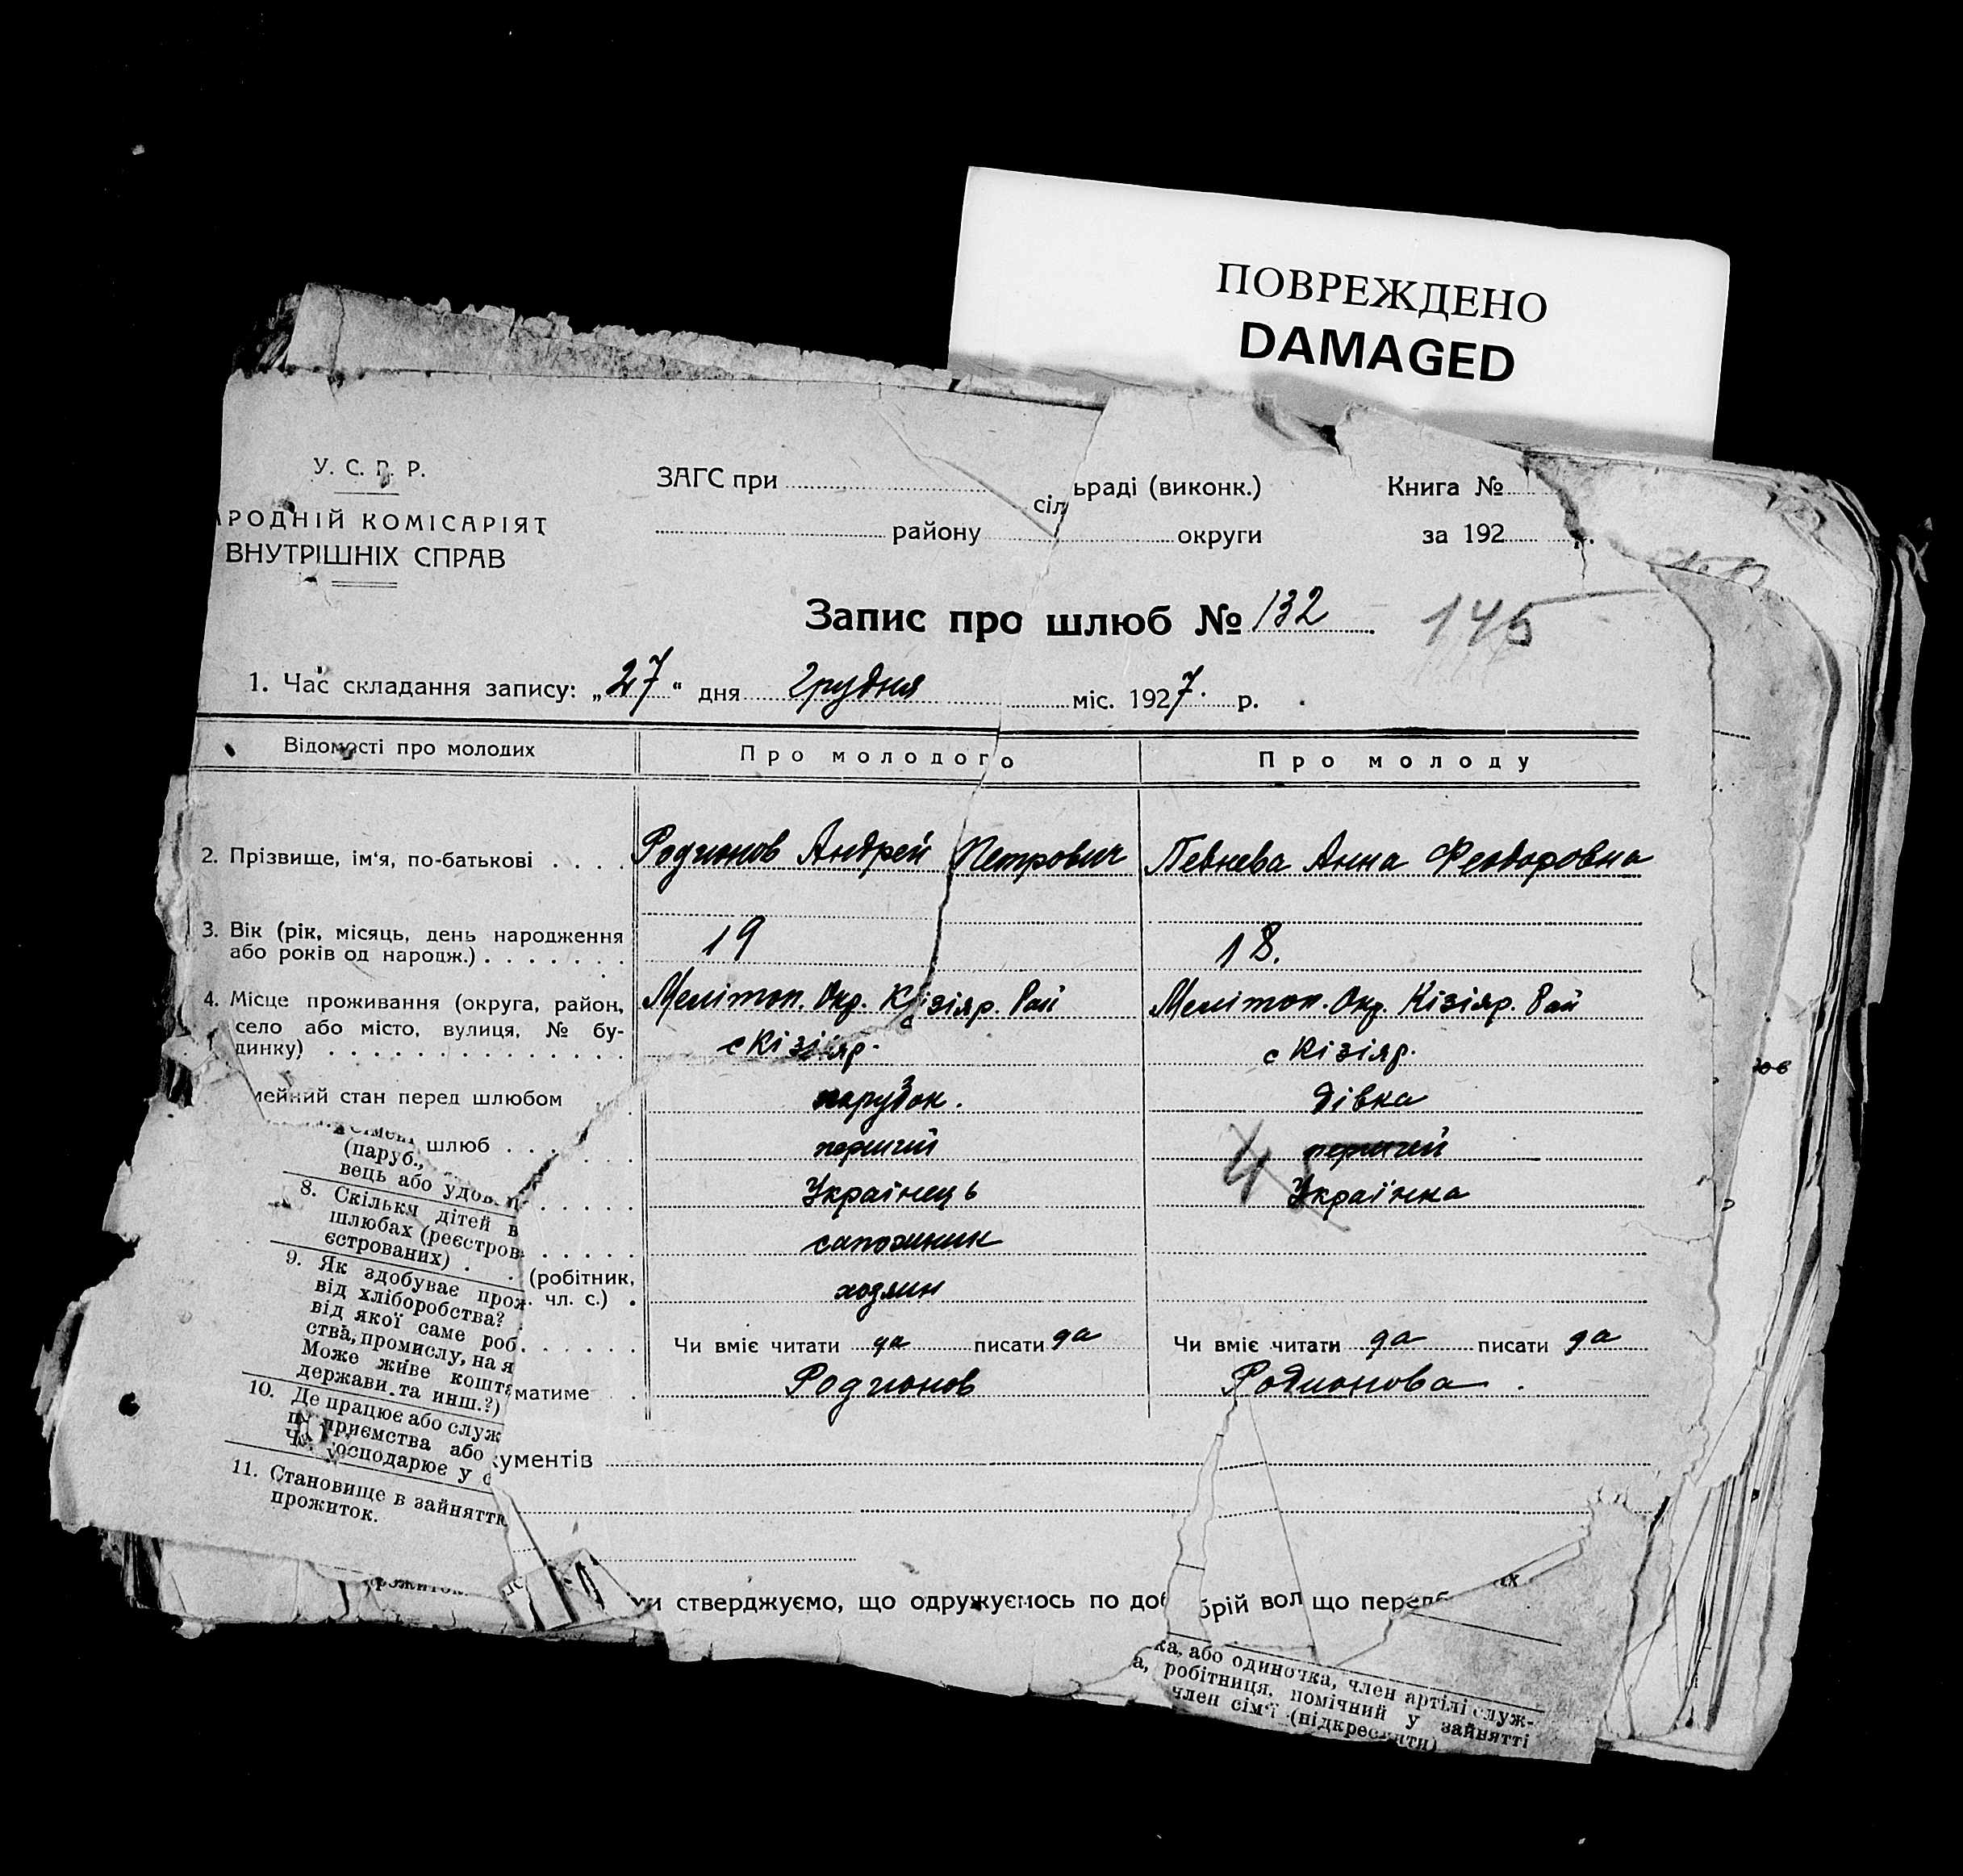 ПОВРЕЖДЕНО
DAMAGED
У. С. Р. Р.
РОДНІЙ КОМІСАРІЯТ
ВНУТРІШНІХ СПРАВ
ЗАГС при сіл ьраді (виконк.)
району округи
Книга №
за 192 р.
Запис про шлюб № 132
145
1. Час складання запису: „27“ дня грудня міс. 1927. р.
Відомості про молодих Про молодого Про молоду
2. Прізвище, ім‘я, по-батькові Родионов Андрей Петрович Певнева Анна Феодоровна
3. Вік (рік, місяць, день народження
або років од народж.) 19 18.
4. Місце проживання (округа, район, Мелітоп. Окр. Кізіяр. Рай Мелітоп. Окр. Кізіяр. Рай
село або місто, вулиця, № бу-
динку) с Кізіяр. с Кізіяр.
мейний стан перед шлюбом парубок. дівка
шлюб перший перший
Українець Українка
сапожник
(робітник,
чл. с.) хозяин
Чи вміє читати да писати да Чи вміє читати да писати да
матиме Родионов Родионова.
кументів
(паруб.,
вець або удов
8. Скільки дітей в
шлюбах (реєстров
єстрованих)
9. Як здобуває прож
від хліборобства?
від якої саме роб
ства, промислу, на я
Може живе кошта
держави та инш.?)
10. Де працює або служ
приємства або
господарює у с
11. Становище в зайнятті
прожиток.
ми стверджуємо, що одружуємось по доб брій вол що передб
ка, або одиночка, член артілі служ-
а, робітниця, помічний у зайнятті
член сім‘ї (підкреслити)